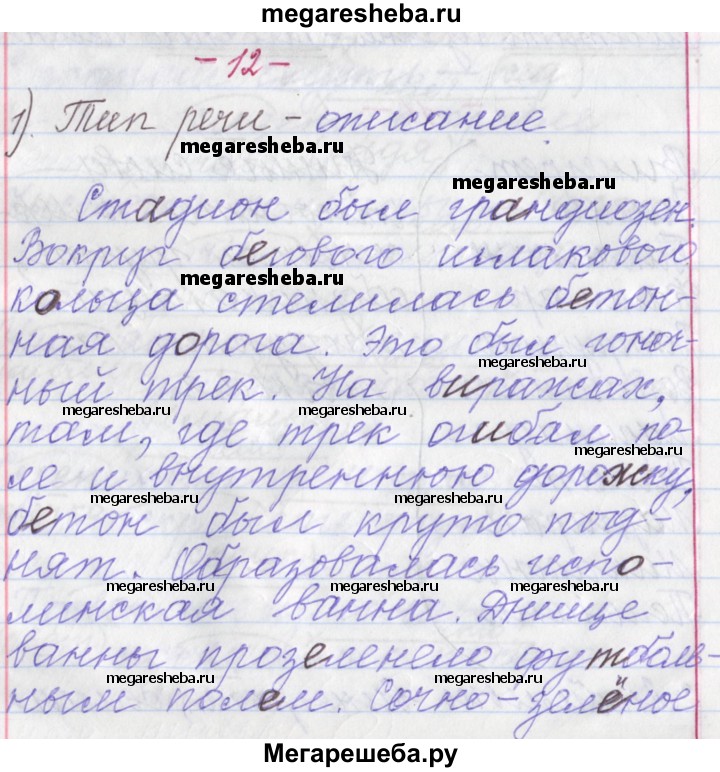 megaresheba.ru
- 12 -
1). Тип речи - описание.
megaresheba.ru
Стадион был грандиозен.
Вокруг бегового шлакового
megaresheba.ru
кольца стелилась бетон-
ная дорога. Это был гоноч-
megaresheba.ru
ный трек. На виражах,
megaresheba.ru megaresheba.ru
там, где трек огибал по-
ле и внутреннюю дорожку,
megaresheba.ru megaresheba.ru
бетон был круто под-
нят. Образовалась испо-
megaresheba.ru megaresheba.ru
линская ванна. Днище
ванны прозеленело футболь-
megaresheba.ru megaresheba.ru
ным полем. Сочно-зелёное
Мегарешеба.ру